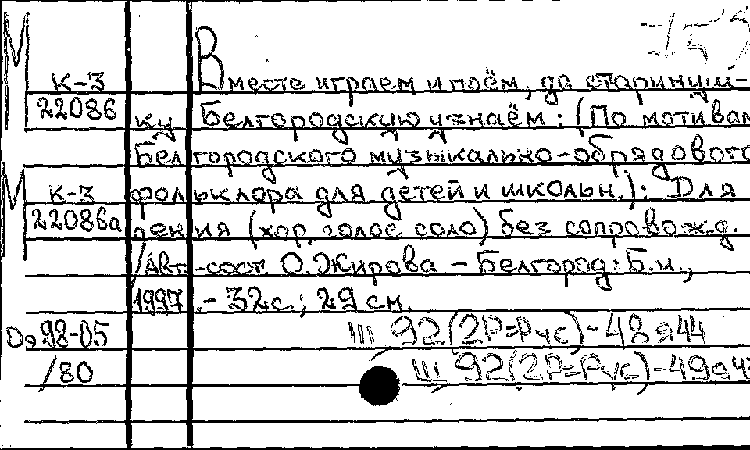 М
К-3
22086
Вместе играем и поём, да старинуш-
ку Белгородскую узнаём: (По мотивам
Белгородского музыкально-обрядового
М
К-3
22086а
фольклора для детей и школьн.): Для
пения (хор, голос соло) без сопровожд.
/Авт.-сост. О. Жирова - Белгород: Б.и.,
1997. - 32с.; 29 см.
98-05
/80
Ш 92(2Р=Рус)-48я44
Ш 92(2Р=Рус)-49я4